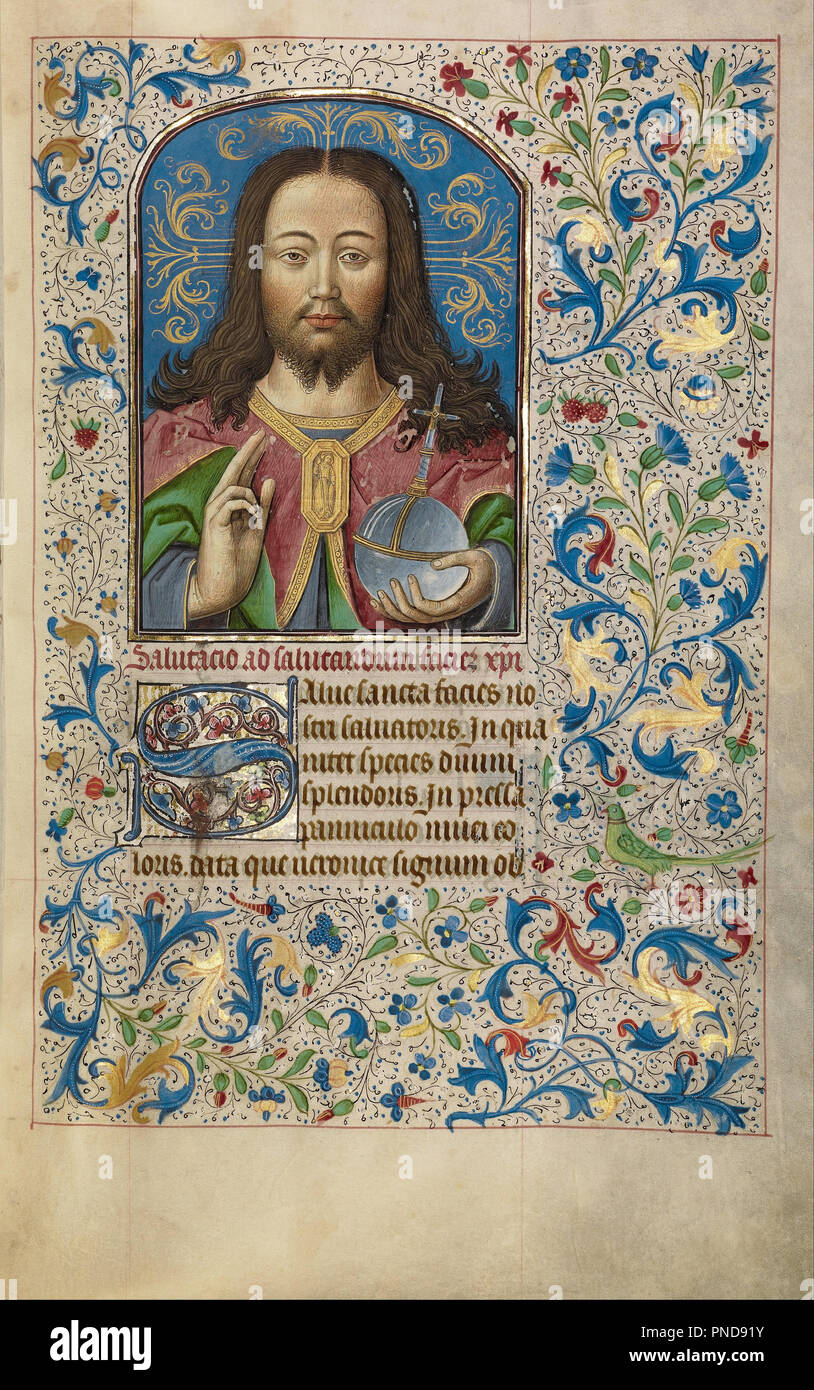 Salutacio ad salutandum faciez xpi
SAlue sancta facies no
stri saluatoris. In qua
nitet species diuini
splendoris. In pressa
panniculo niuei co
loris. data que ueronice signum ob
a
alamy
a
alamy
a
a
alamy
alamy
Image ID: PND91Y
www.alamy.com